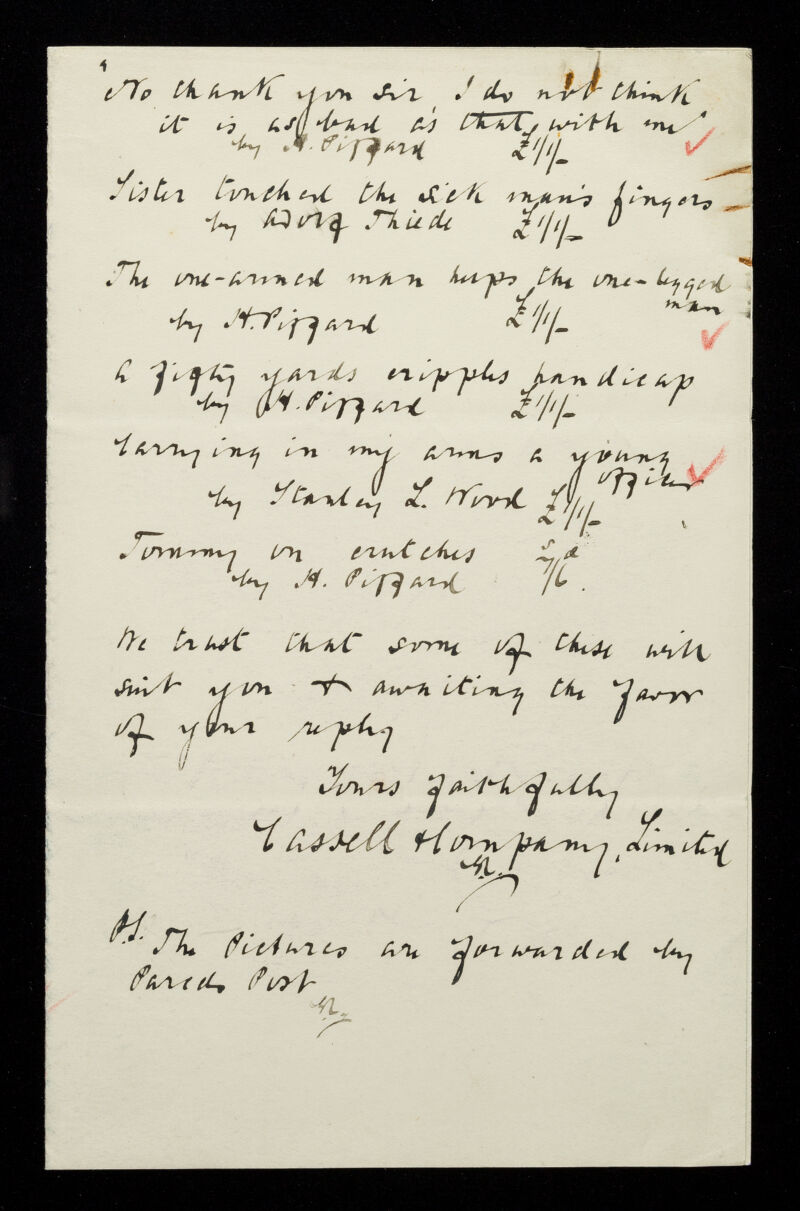 "No thank you sir, I do not think
it is as bad as that with me"
by H. Piffard £1/1/-
Sister touched the sick man's fingers
by Adolf Thiede £1/1/-
The one-armed man helps the one-legged
man
by H. Piffard £1/1/-
A fifty yards cripples handicap
by H. Piffard £1/1/-
Carrying in my arms a young
officer
by Stanley L. Wood £1/1/-
Tommy on crutches s d
by H. Piffard 7/6.
We trust that some of these will
suit you & awaiting the favor
of your reply
Yours faithfully
Cassell & Company, Limited
P.S. The Pictures are forwarded by
Parcels Post